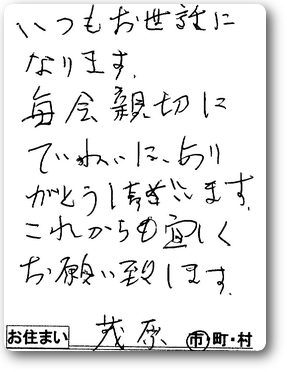 いつもお世話に
なります。
毎会親切に
ていねいに、あり
がとう御座います。
これからも宜しく
お願い致します。
お住まい 茂原 市・町・村